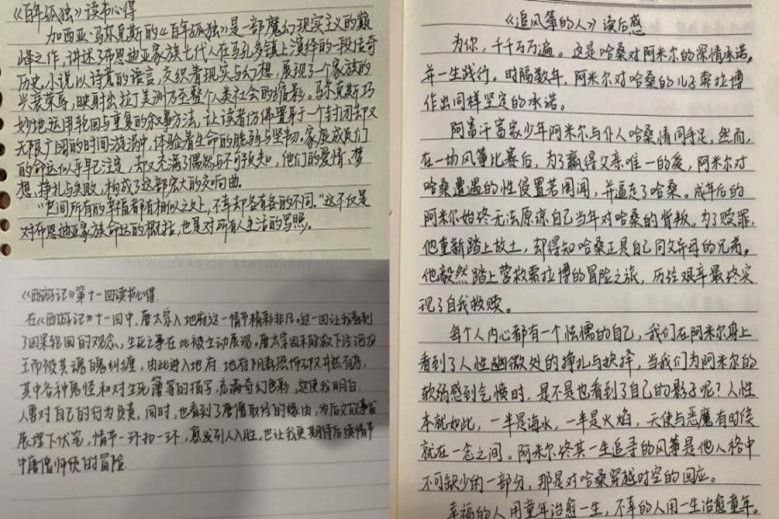 《百年孤独》读书心得
加西亚·马尔克斯的《百年孤独》是一部魔幻现实主义的巅
峰之作,讲述了布恩迪亚家族七代人在马孔多镇上演绎的一段传奇
历史,小说以诗意的语言,交织着现实与幻想,展现了一个家族的
兴衰荣辱,映射出拉丁美洲乃至整个人类社会的缩影。马尔克斯巧
妙地运用轮回与重复的叙事方法,让读者仿佛置身于一个封闭却又
无限广阔的时间漩涡中,体验着生命的脆弱与坚韧。家族成员们
的命运似乎早已注定,却又充满了偶然与不可预知,他们的爱情、梦
想、挣扎与失败,构成了这部宏大的交响曲。
“世间所有的幸福都有相似之处,不幸却各有各的不同。”这不仅是
对布恩迪亚家族命运的概括,也是对所有人生活的写照。
《西游记》第十一回读书心得
在《西游记》十一回中,唐太宗入地府这一情节精彩非凡。这一回让我看到
了因果轮回的观念、生死之事在此被生动展现。唐太宗因未能救下泾河龙
王而被其魂魄纠缠,由此进入地府。地府阴森恐怖
其中各种鬼怪和对生死簿等的描写,充满奇幻色彩,这使我明白
人要对自己的行为负责,同时,也看到了唐僧取经的缘由,为后文故事发
展埋下伏笔,情节一环扣一环,引人入胜,也让我更期待后续情节
中唐僧师徒的冒险
《追风筝的人》读后感
为你,千千万万遍。这是哈桑对阿米尔的深情承诺,
并一生践行。时隔数年,阿米尔对哈桑的儿子索拉博
作出同样坚定的承诺。
阿富汗富家少年阿米尔与仆人哈桑情同手足,然而,
在一场风筝比赛后,为了赢得父亲唯一的爱,阿米尔对
哈桑遭遇的性侵置若罔闻,并逼走了哈桑。成年后的
阿米尔始终无法原谅自己当年对哈桑的背叛。为了赎罪,
他重新踏上故土,却得知哈桑正是自己同父异母的兄弟。
他毅然踏上营救索拉博的冒险之旅,历经艰辛最终实
现了自我救赎。
每个人内心都有一个怯懦的自己,我们在阿米尔身上
看到了人性幽微处的挣扎与抉择,当我们为阿米尔的
软弱感到气愤时,是不是也看到了自己的影子呢?人性
本就如此,一半是海水,一半是火焰,天使与恶魔有时候
就在一念之间。阿米尔终其一生追寻的风筝是他人格中
不可缺少的一部分,那是对哈桑穿越时空的回应。
幸福的人用童年治愈一生,不幸的人用一生治愈童年。